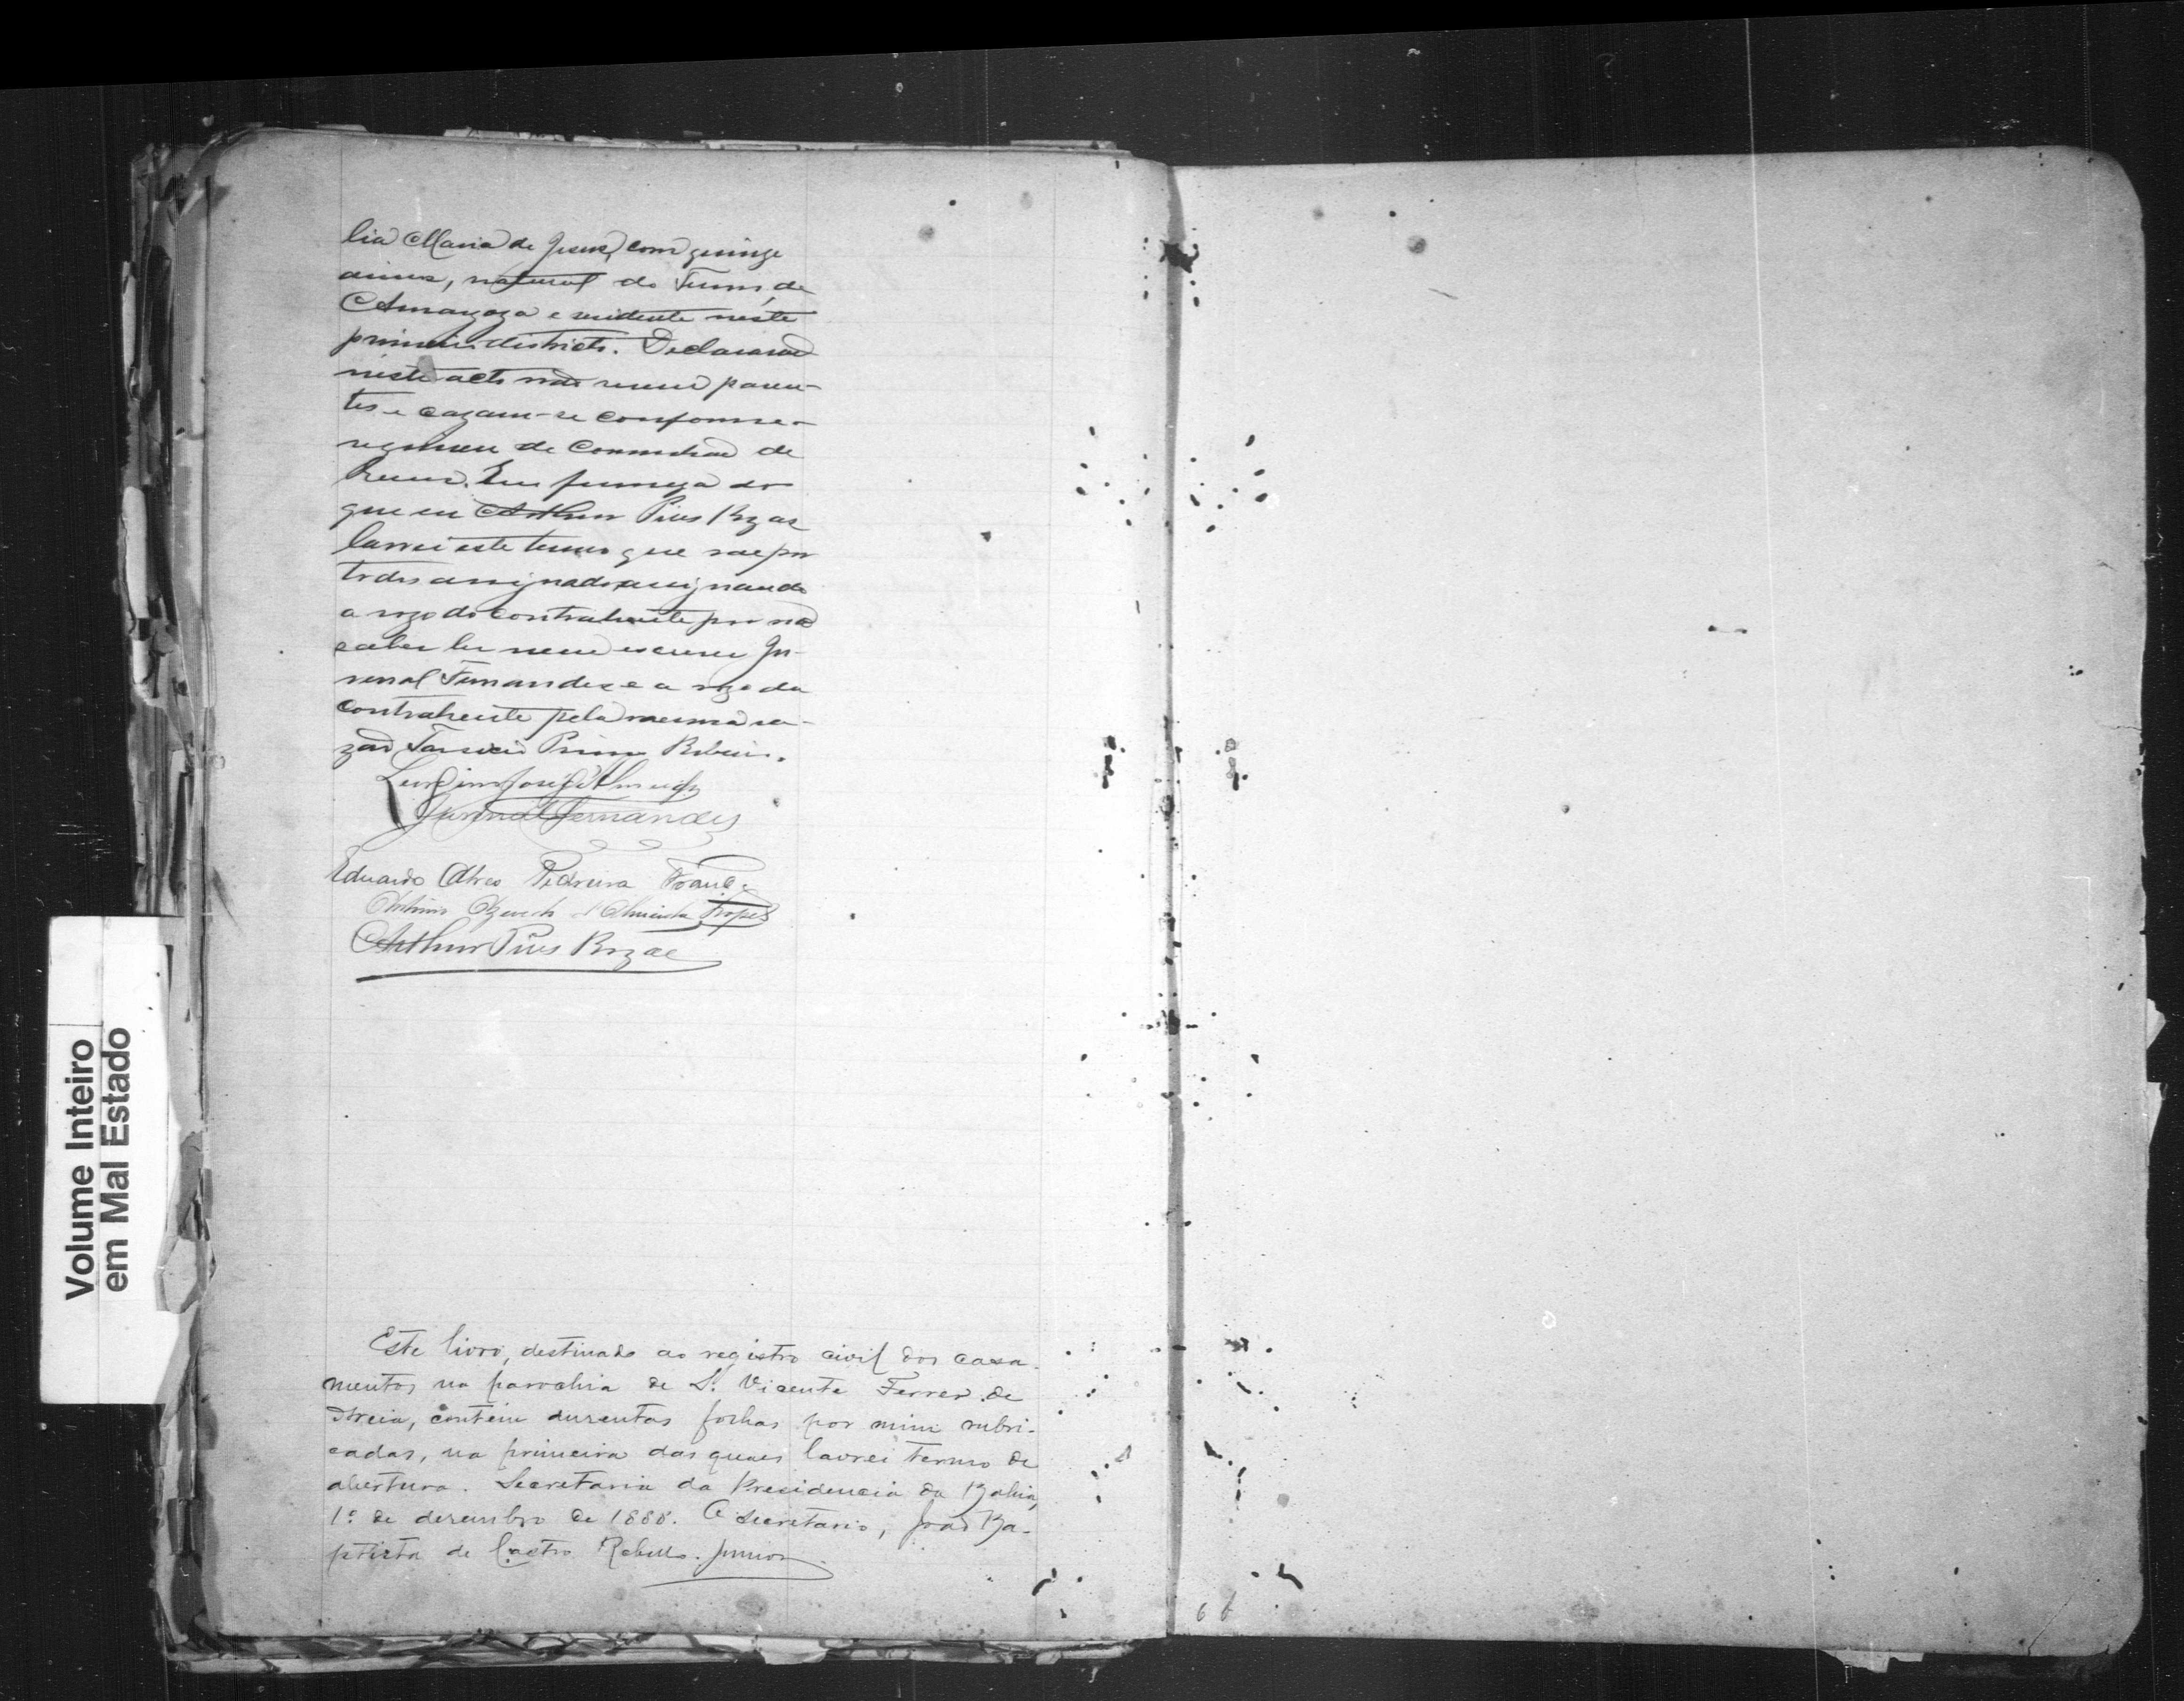 lia Maria de Jesus, com quinze
annos, natural do Termo de
Amargoza e residente neste
primeiro districto. Declararão
neste acto não serem paren-
tes e cazam-se conforme o
regimen de Communhão de
bens. Em firmeza do
que eu Arthur Pires Rozas
lavrei este termo que vae por
todos assignado, assignando
a rogo do contrahente por não
saber ler nem escrever Ju-
venal Fernandes e a rogo da
contrahente pela mesma ra-
zão Primo Ribeiro.
José d'Almeida
Juvenal Fernandes
Eduardo Alves Pedreira França
Antonio Azevedo d'Almeida
Arthur Pires Rozas
Volume Inteiro
em Mal Estado
Este livro, destinado ao registro civil dos casa-
mentos na parochia de S. Vicente Ferrer de
Areia, contém duzentas folhas por mim rubri-
cadas, na primeira das quaes lavrei termo de
abertura. Secretaria da Presidencia da Bahia,
1º de dezembro de 1888. O secretario, João Ba-
ptista de Castro Rebello Junior